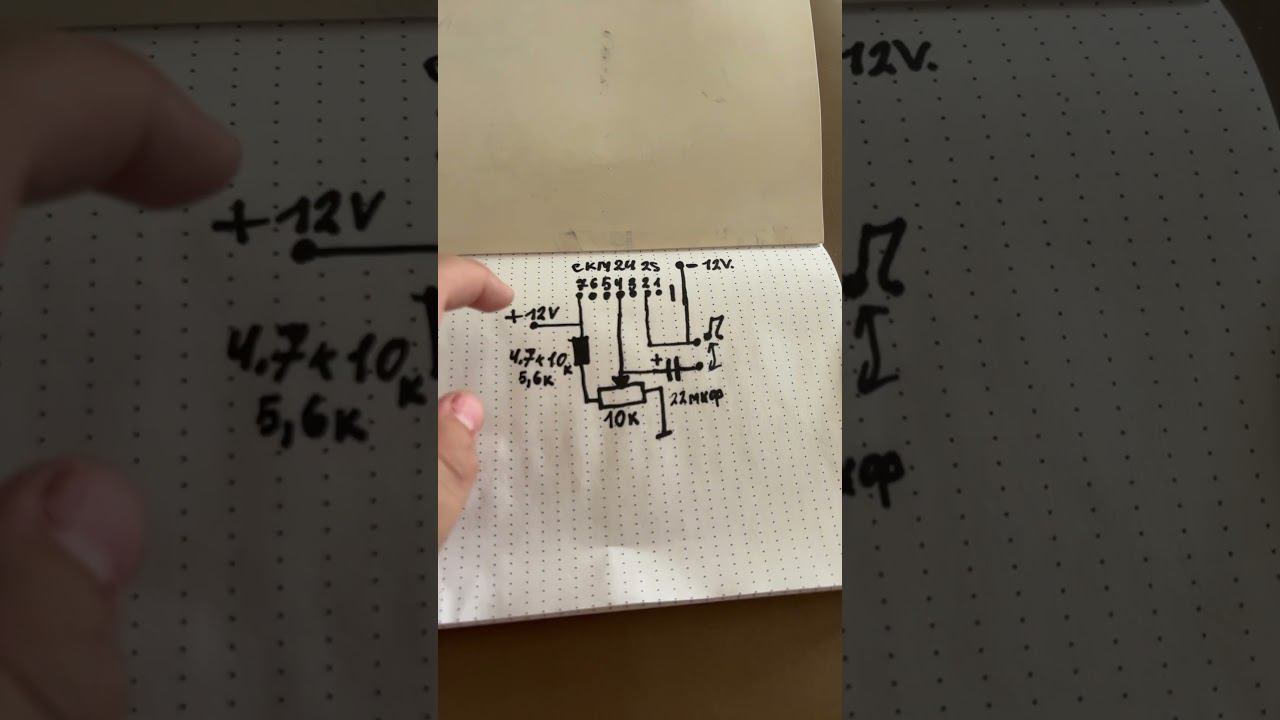 СКМ24 25 - 12V.
7 6 5 4 3 2 1
+ 12V
4.7к 10к
5,6к
+
22мкф
10к